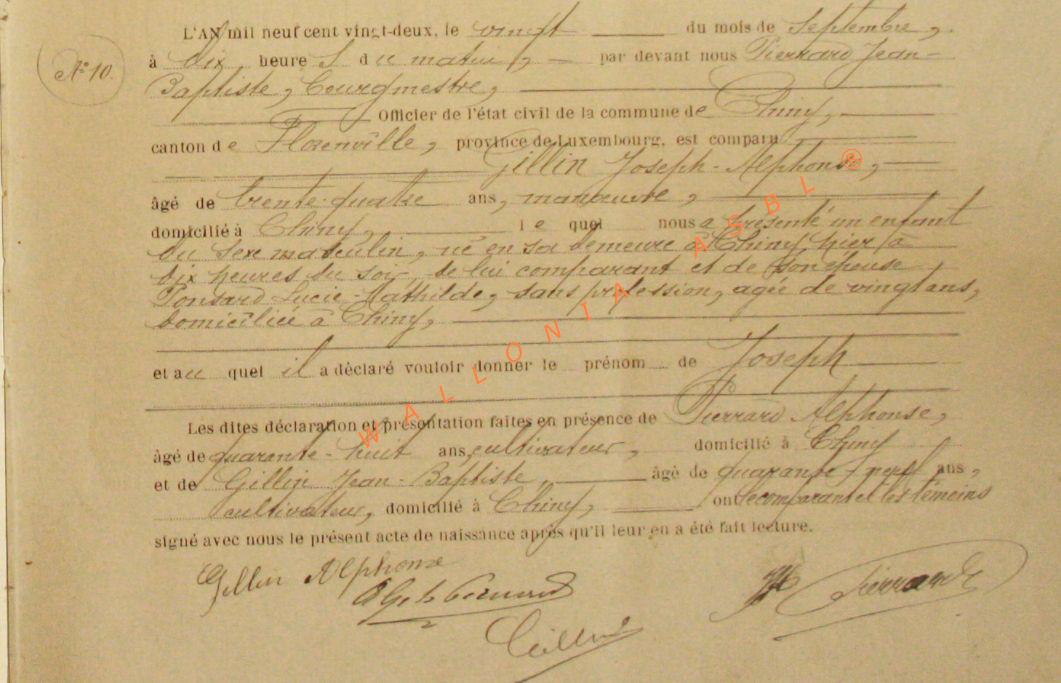 N° 10.
L'AN mil neuf cent vingt-deux, le vingt du mois de Septembre,
à dix heures du matin, par devant nous Pierrard Jean-
Baptiste, bourgmestre,
Officier de l'état civil de la commune de Chiny,
canton de Florenville, province de Luxembourg, est comparu
Gillin Joseph-Alphonse,
âgé de trente-quatre ans, manœuvre,
domicilié à Chiny, le quel nous a présenté un enfant
du sexe masculin, né en sa demeure à Chiny, hier, à
dix heures du soir, de lui comparant et de son épouse
Ponsard Lucie-Mathilde, sans profession, agée de vingt ans,
domiciliée à Chiny,
et au quel il a déclaré vouloir donner le prénom de Joseph
Les dites déclaration et présentation faites en présence de Pierrard Alphonse,
âgé de quarante-huit ans, cultivateur, domicilié à Chiny
et de Gillin Jean-Baptiste, âgé de quarante-neuf ans,
cultivateur, domicilié à Chiny, ont le comparant et les témoins
signé avec nous le présent acte de naissance après qu'il leur en a été fait lecture.
Gillin Alphonse
Pierrard
Gillin
WALLONIA ASBL ®